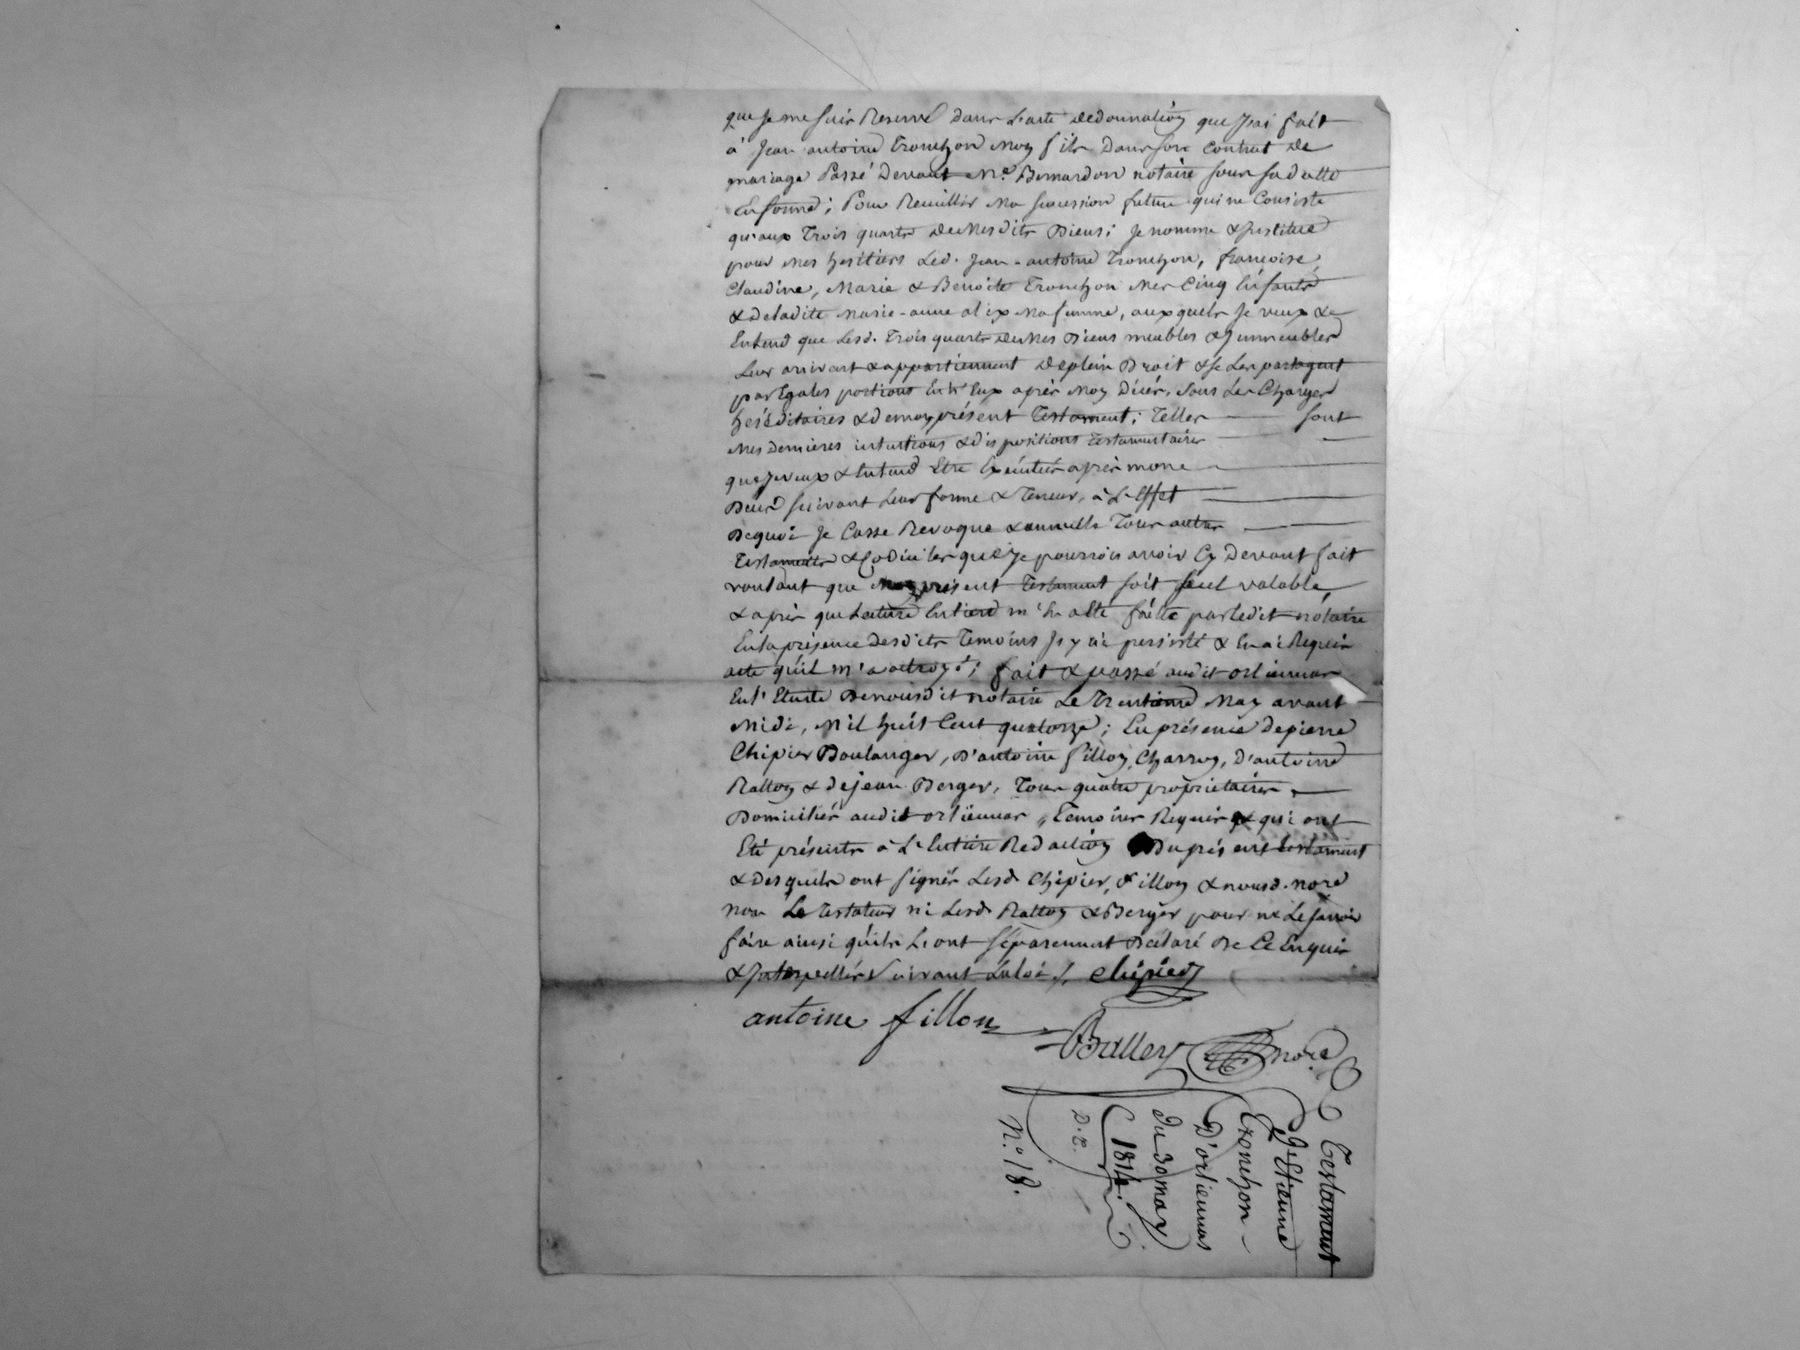 que Je me suis Reservé dans L'acte de donnation que J'ai fait
à Jean antoine Tronchon Moy fils Dans son Contrat De
mariage Passé Devant Me. Bernardon notaire sous sa datte
En forme; Pour Recuillir Ma succession future qui ne Consiste
qu'aux Trois quarts de Mes dits Biens; Je nomme & Institue
pour mes heritiers Led. Jean-antoine Tronchon, francoise,
Claudine, Marie & Benoite Tronchon Mes Cinq Enfants
& de ladite Marie-anne alix Ma femme, auxquels Je veux &
Entend que Lesd. Trois quarts de Mes Biens meubles & Immeubles
Leur arrivent & appartiennent De plein Droit & se Les partagent
par Egales portions Entr'Eux après Moy Décés, sous Les Charges
heréditaires & de moy présent Testament; Telles sont
Mes Dernieres intentions & dispositions Testamentaires
que Je veux & Entend Etre Exécutées après mon
Decès suivant Leur forme & Teneur, à L'Effet
De quoi Je Casse Revoque & annulle Tous autres
Testaments & Codiciles que Je pourrois avoir Cy Devant fait
voulant que Moy présent Testament soit seul valable,
& après que Lecture Entiere m'En a Eté faitte par Ledit notaire
En la présence desdits Temoins J'y ai persisté & En ai Requis
acte qu'il m'a octroyé; fait & passé audit orliennas
En l'Etude De nousdit notaire Le Trentieme May avant
Midi, Mil huit Cent quatorze; En présence de pierre
Chipier Boulanger, D'antoine fillon, Charron, D'antoine
Ratton & de jean Berger, Tous quatre propriétaires,
Domiciliés audit orliennas, Temoins Requis & qui ont
Eté présents à L'Entiere Redaction Du présent testament
& Desquels ont signés Lesd. Chipier, fillon & nousd. nore
non Le Testateur ni Lesd. Ratton & Berger pour ne Le savoir
faire ainsi qu'ils L'ont séparement Déclaré De Ce Enquis
& Interpellés suivant La loi /. chipier
antoine fillon
Balley nore
Testament
d'Etienne
Tronchon
D'orliennas
du 30 may
1814.
D.E.
N.° 18.